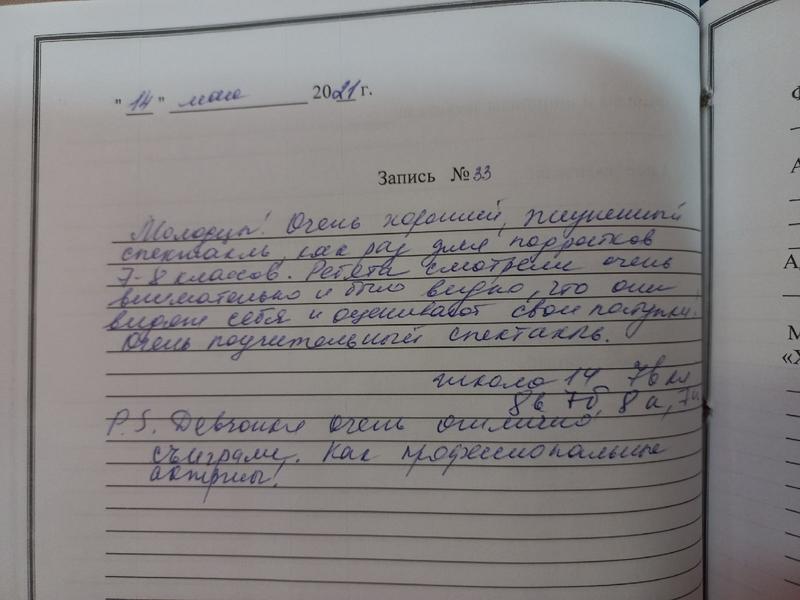 "14" мая 2021 г.
Запись № 33
Молодцы! Очень хороший, жизненный
спектакль, как раз для подростков
7-8 классов. Ребята смотрели очень
внимательно и было видно, что они
видят себя и оценивают свои поступки.
Очень поучительный спектакль.
школа 14 7в кл
8в 7б, 8а, 7а
P.S. Девчонки очень отлично
сыграли. Как профессиональные
актрисы!
А
А
М
«Х